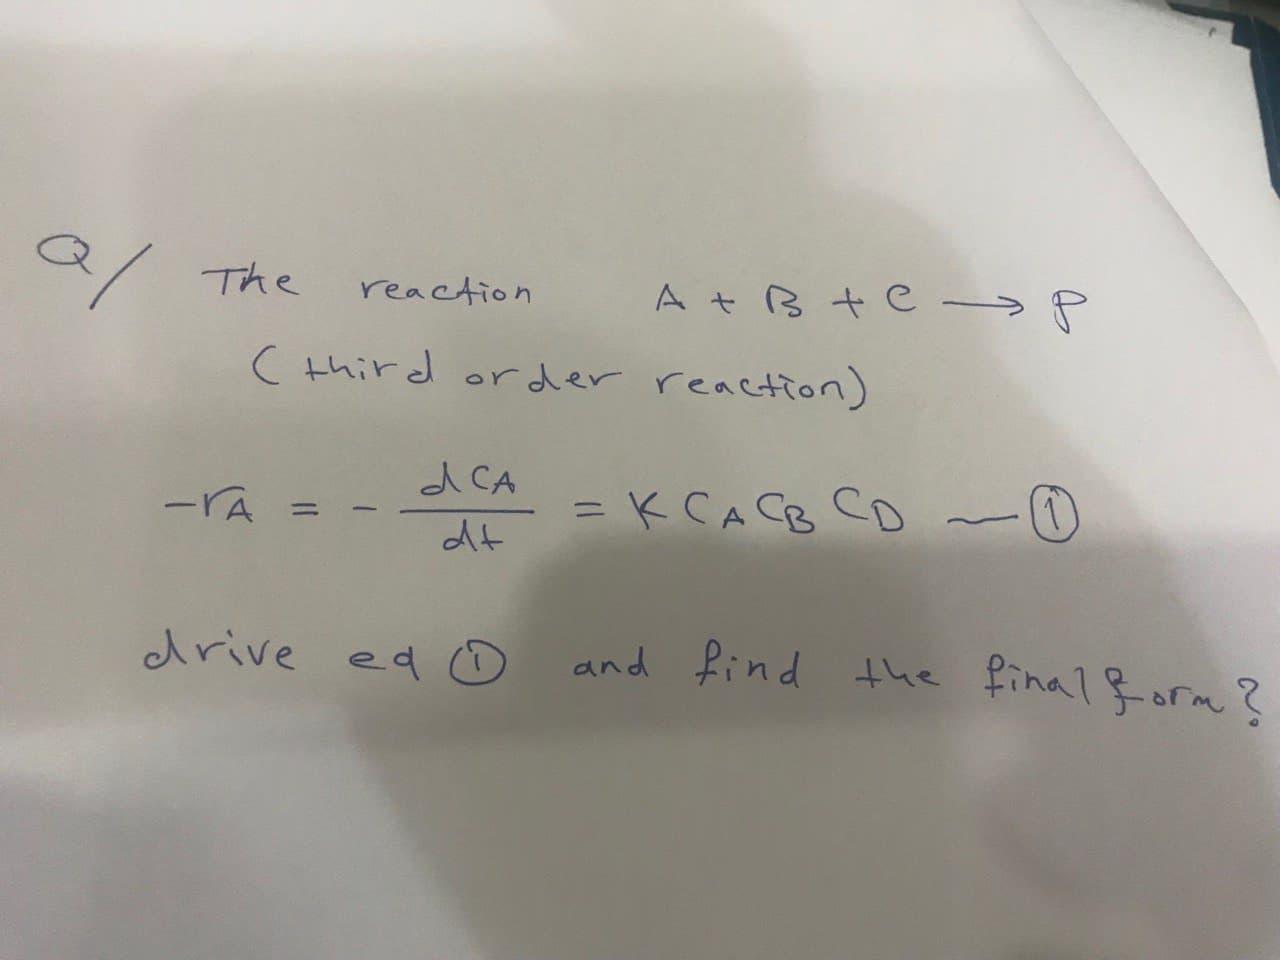 Q/ The reaction A + B + C → P
(third order reaction)
-rA = - dCA/dt = K CA CB CD — ①
drive eq ① and find the final form?